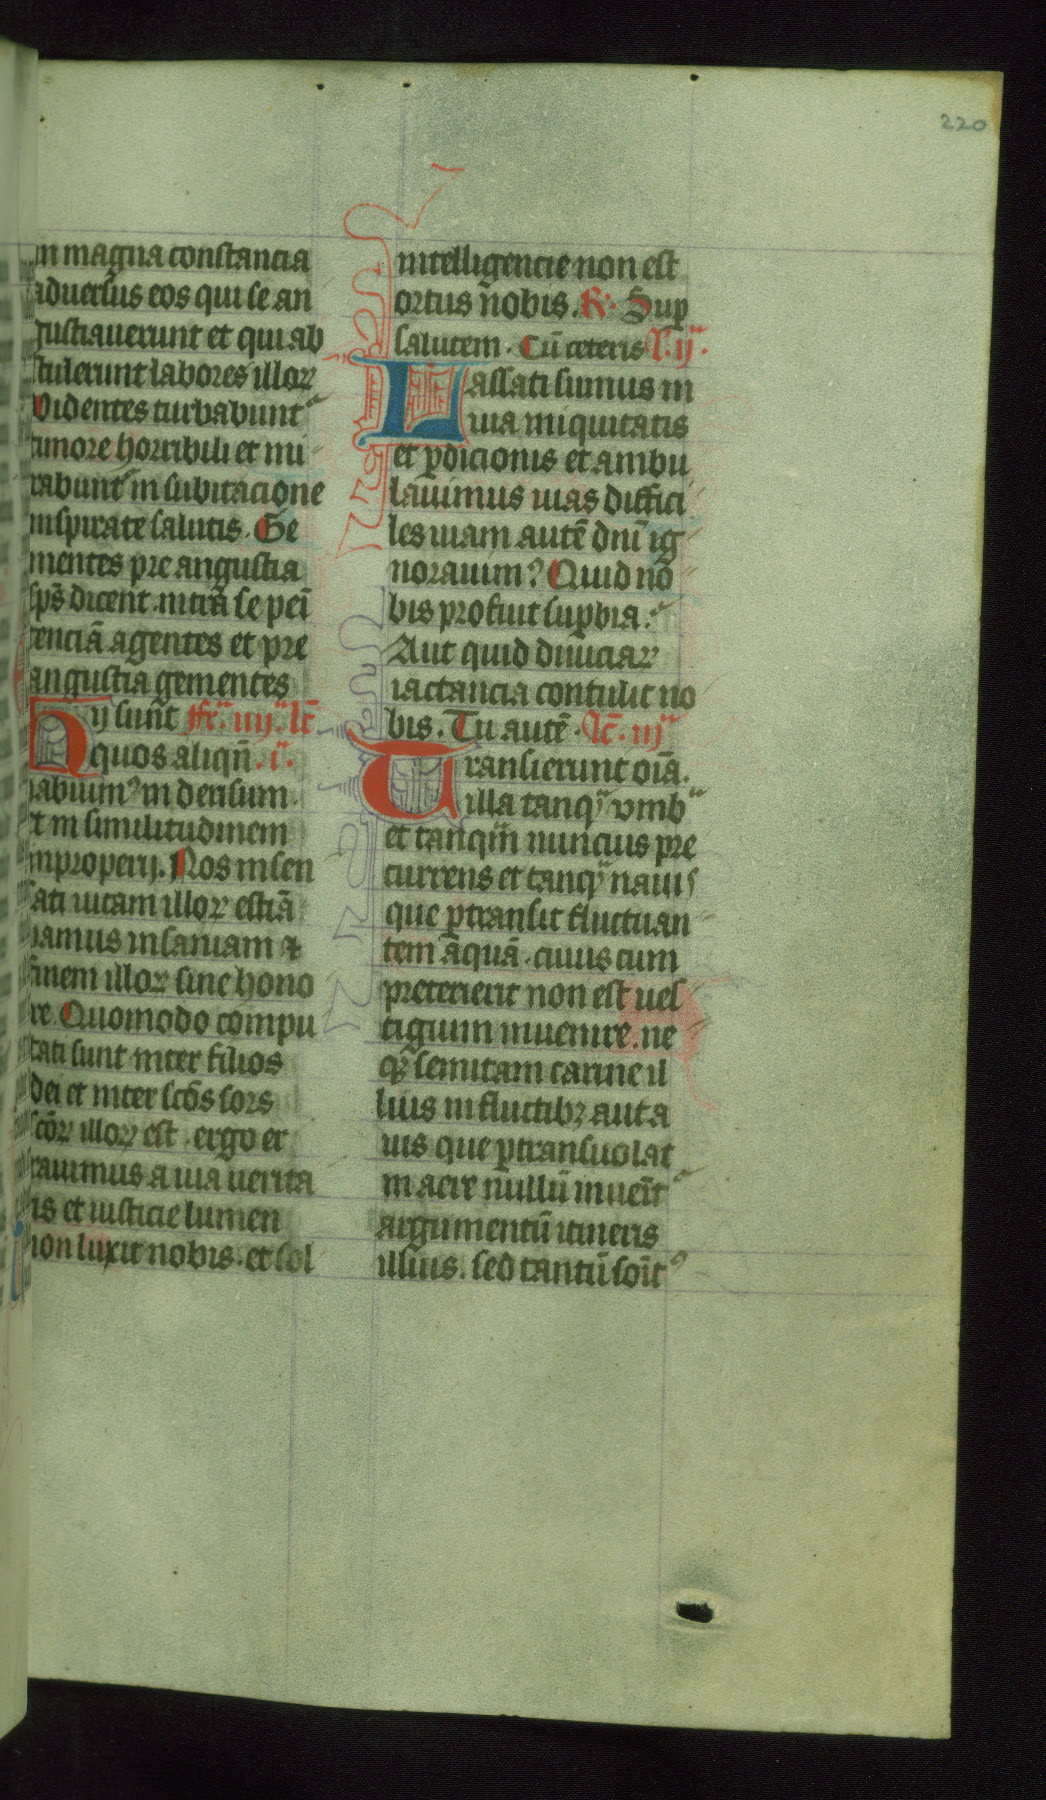 220
in magna constancia
aduersus eos qui se an
gustiauerunt et qui ab
stulerunt labores illoꝝ
Videntes turbabunt᷑
timore horribili et mi
rabunt᷑ in subitacione
insperate salutis. Ge
mentes pre angustia
sp̄s dicent intra se peī
tenciā agentes et pre
angustia gementes
Hij sun̄t fr̄. iiij. lc̄
quos aliqn̄. i.
habuim⁹ in derisum
et in similitudinem
improperij. Nos insen
sati uitam illoꝝ estīa
bamus insaniam ⁊
finem illoꝝ sine hono
re Quomodo compu
tati sunt inter filios
dei et inter sc̄os sors
sc̄oꝝ illoꝝ est. ergo er
rauimus a uia uerita
tis et iusticie lumen
non luxit nobis. et sol
intelligencie non est
ortus nobis. R̄. Suꝑ
salutem. Cū ceteris l. ij.
Lassati sumus in
uia iniquitatis
et ꝑdicionis et ambu
lauimus uias diffici
les uiam autē dn̄i ig
norauim⁹ Quid no
bis profuit suꝑbia.
Aut quid diuiciaꝝ
iactancia contulit no
bis. Tu autē. lc̄. iij
Transierunt oīa.
illa tanqͣ vmbͣ
et tanqm̄ nuncius pre
currens et tanqͣ nauis
que ꝑtransit fluctuan
tem āquā. cuius cum
preterierit non est ues
tigium inuenire. ne
qꝫ semitam carine il
lius in fluctibꝫ aut a
uis que ꝑtransuolat
in aere nullū inueīt᷑
argumentū itineris
illius. sed tantū soīt⁹